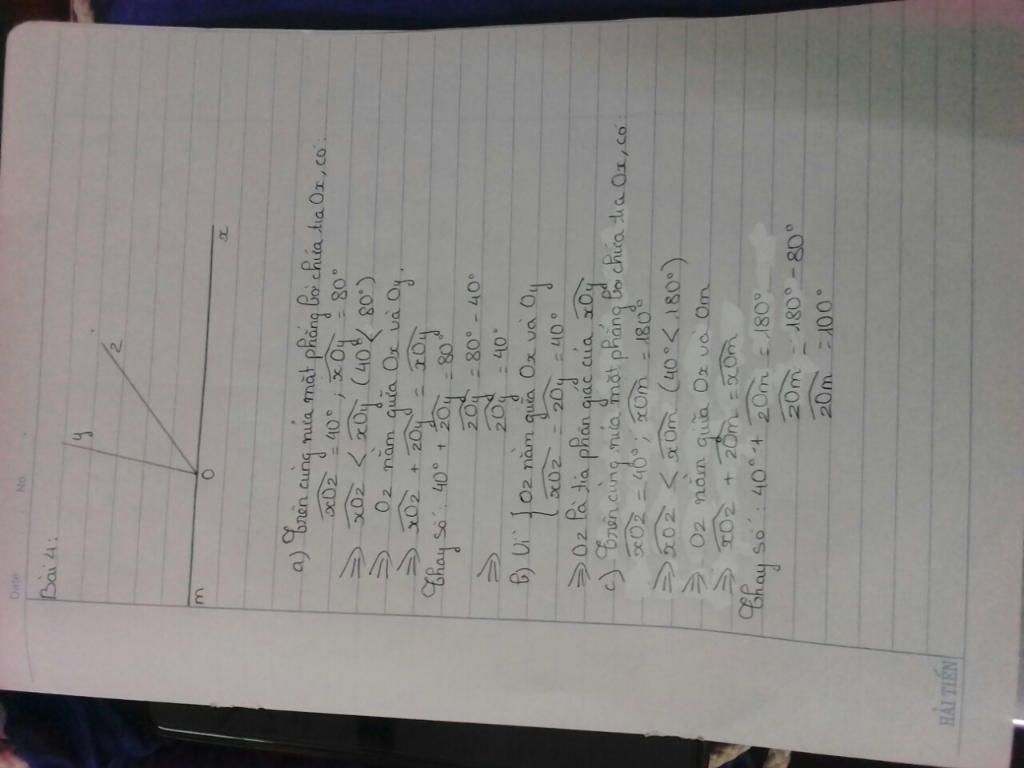 Date No
Bài 4:
y
z
m O x
a) Trên cùng nửa mặt phẳng bờ chứa tia Ox, có:
xOz = 40°, xOy = 80°
=> xOz < xOy (40° < 80°)
=> Oz nằm giữa Ox và Oy.
=> xOz + zOy = xOy
Thay số: 40° + zOy = 80°
zOy = 80° - 40°
=> zOy = 40°
b) Vì { Oz nằm giữa Ox và Oy
xOz = zOy = 40°
=> Oz là tia phân giác của xOy
c) Trên cùng nửa mặt phẳng bờ chứa tia Ox, có:
xOz = 40°; xOm = 180°
=> xOz < xOm (40° < 180°)
=> Oz nằm giữa Ox và Om
=> xOz + zOm = xOm
Thay số: 40° + zOm = 180°
zOm = 180° - 80°
zOm = 100°
HẢI TIẾN